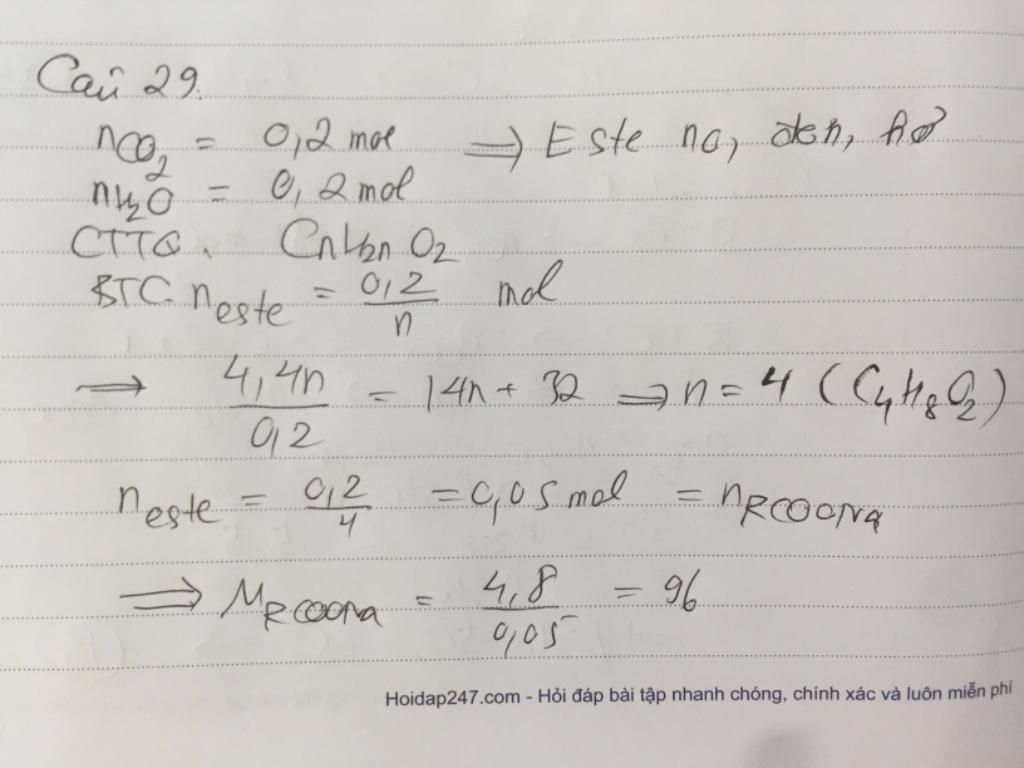 Câu 29.
nCO2 = 0,2 mol => Este no, đơn, hở
nH2O = 0,2 mol
CTTQ: CnH2nO2
BTC neste = 0,2/n mol
=> 4,4n/0,2 = 14n + 32 => n = 4 (C4H8O2)
neste = 0,2/4 = 0,05 mol = nRCOONa
=> MRCOONa = 4,8/0,05 = 96
Hoidap247.com - Hỏi đáp bài tập nhanh chóng, chính xác và luôn miễn phí